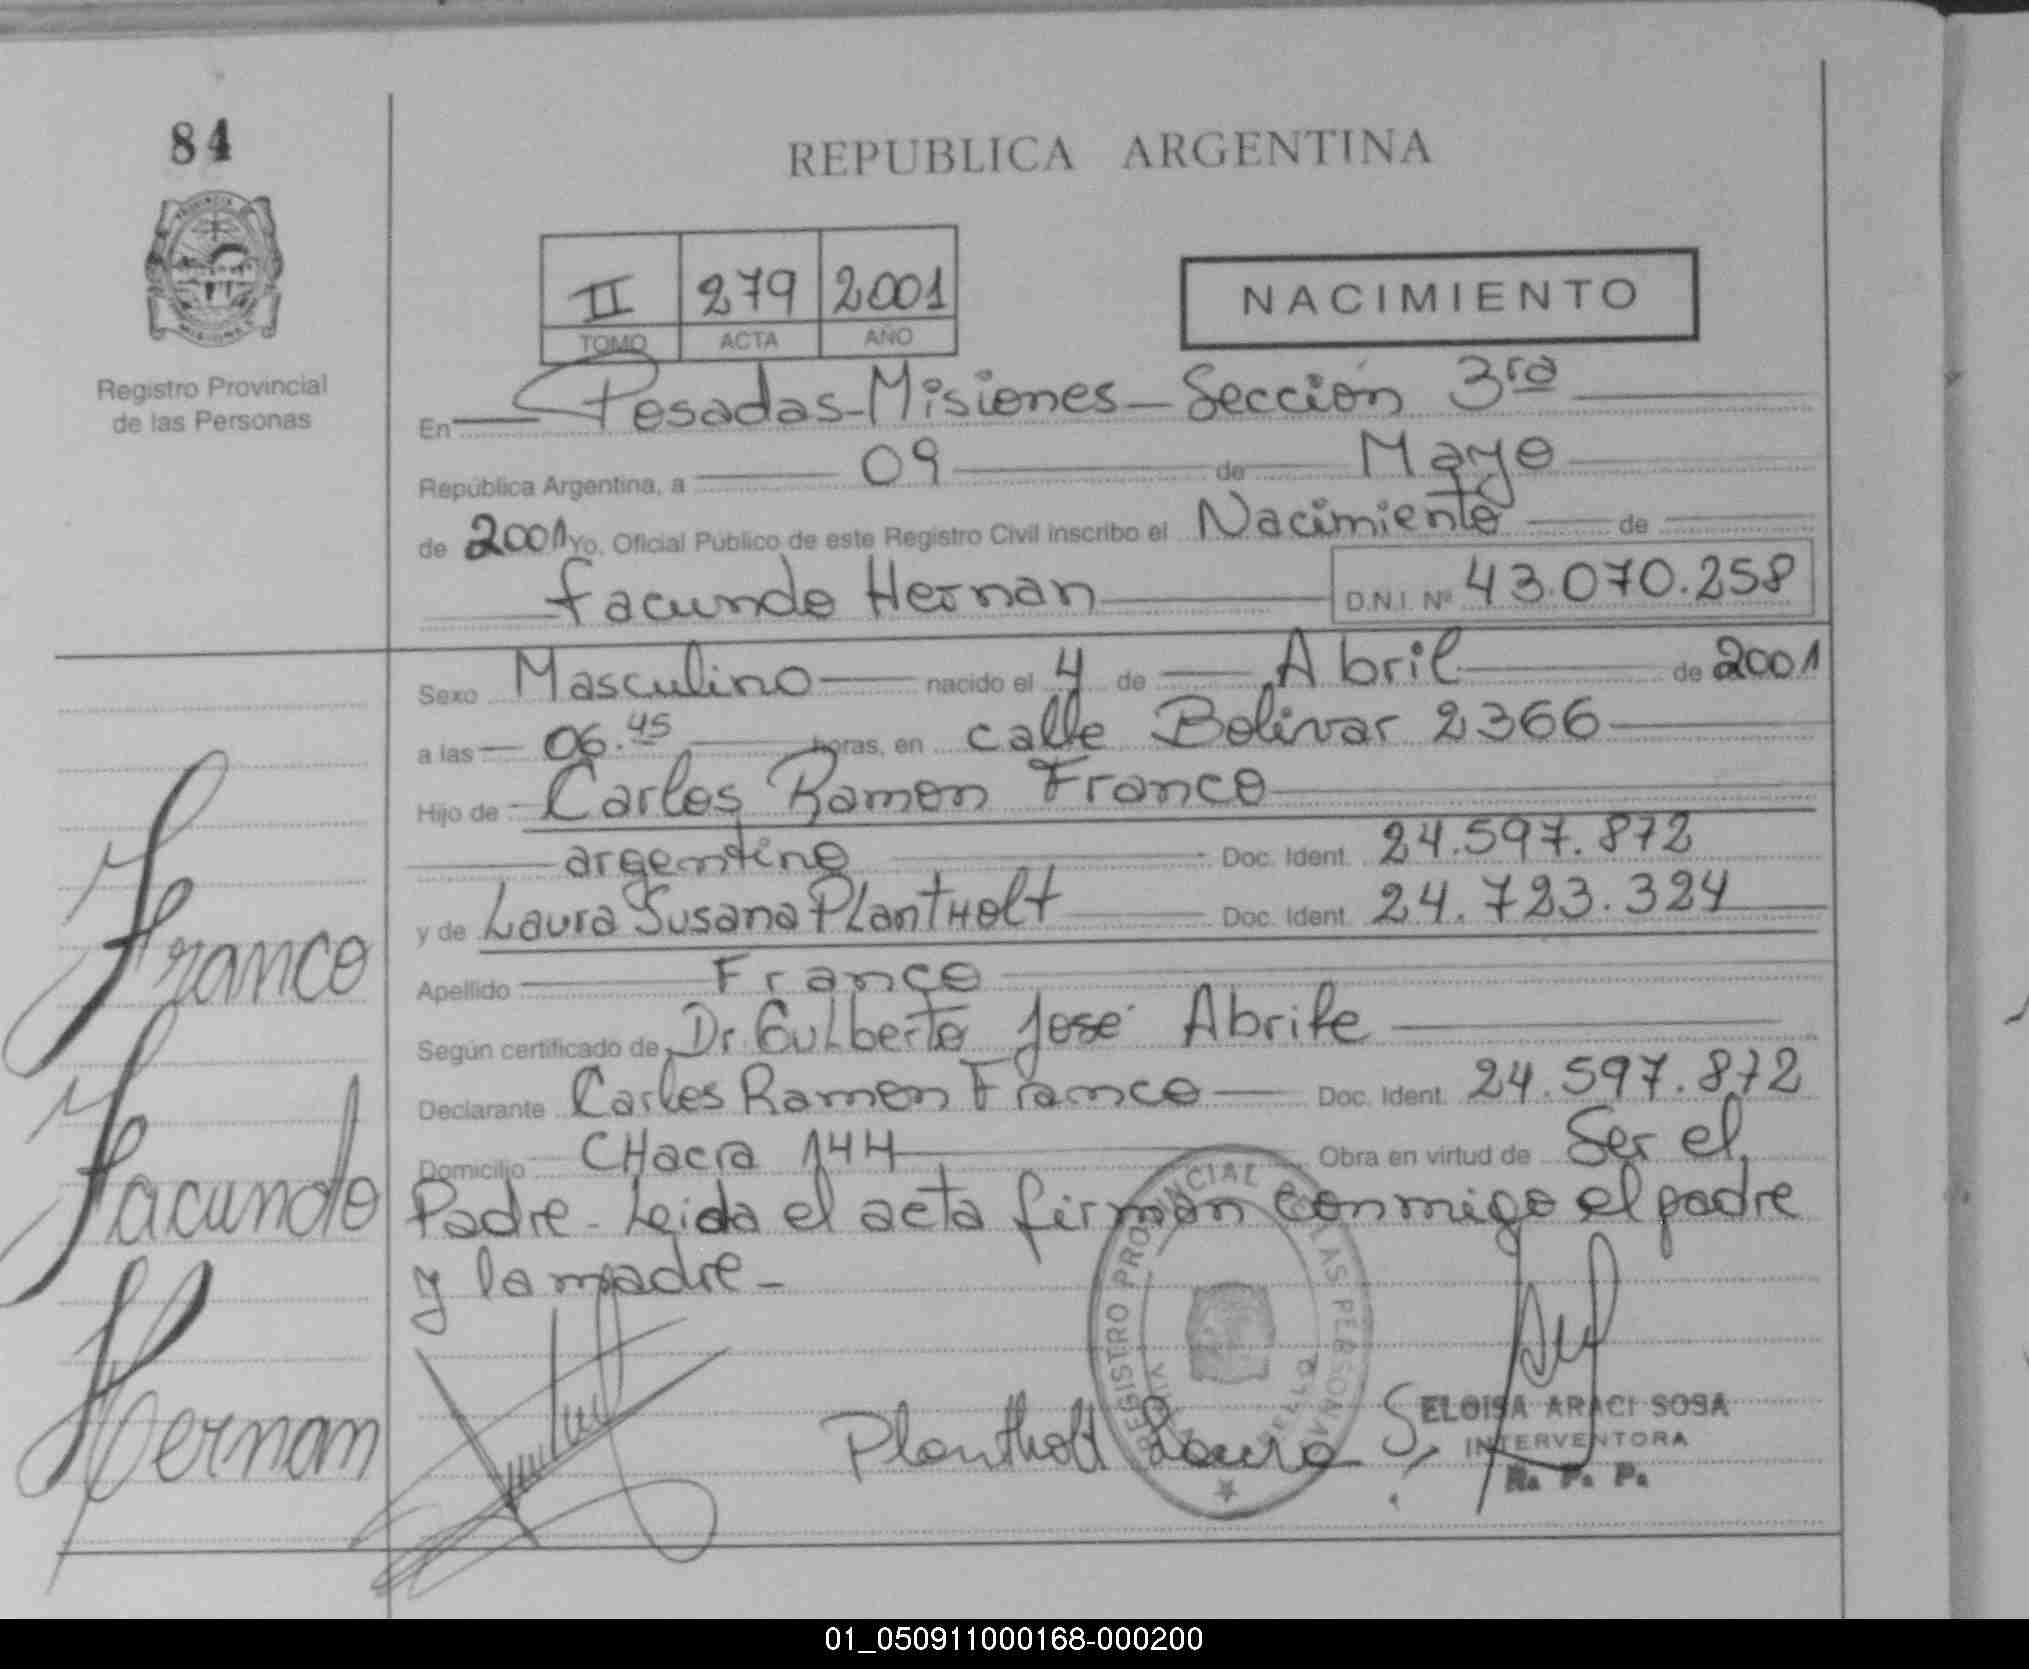 84
REPUBLICA ARGENTINA
II 279 2001
TOMO ACTA AÑO
NACIMIENTO
Registro Provincial
de las Personas
En Posadas-Misiones-Sección 3ra
República Argentina, a 09 de Mayo
de 2001 Yo, Oficial Público de este Registro Civil inscribo el Nacimiento de
Facundo Hernan D.N.I. Nº 43.070.258
Sexo Masculino nacido el 4 de Abril de 2001
a las 06.45 horas, en calle Bolivar 2366
Hijo de Carlos Ramon Franco
argentino Doc. Ident. 24.597.872
y de Laura Susana PLantHolt Doc. Ident. 24.723.324
Apellido Franco
Según certificado de Dr. José
Declarante Carlos Ramon Franco Doc. Ident. 24.597.872
Domicilio CHacra 144 Obra en virtud de Ser el
Padre - Leida el acta firman conmigo el padre
y la madre -
Franco
Facundo
Hernan
REGISTRO PROVINCIAL DE LAS PERSONAS
Plantholt Laura S.
ELOISA ARACI SOSA
INTERVENTORA
R. P. P.
01_050911000168-000200